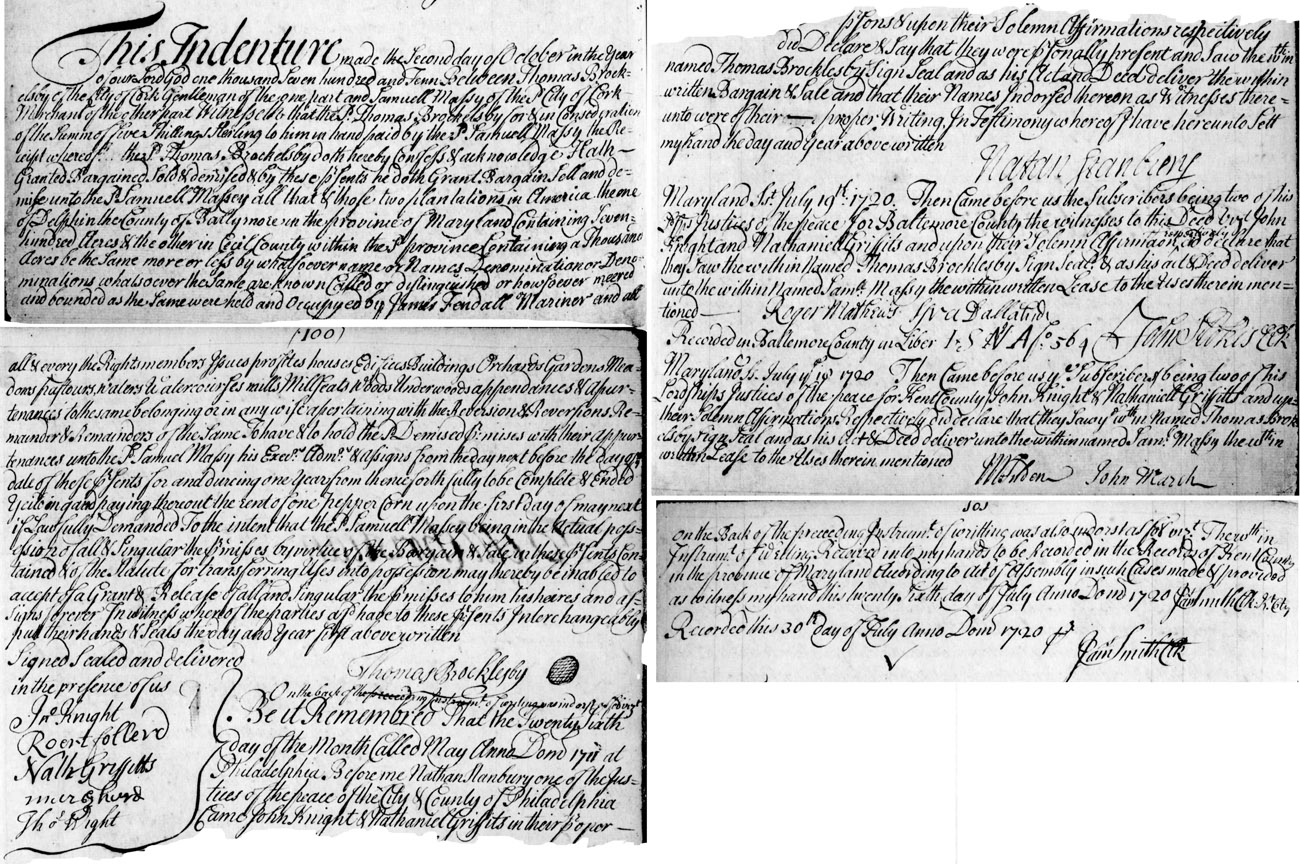 This Indenture made the Second day of October in the Year
of our Lord God one thousand Seven hundred and Tenn Between Thomas Brock-
elsby of the City of Cork Gentleman of the one part and Samuell Massy of the sd City of Cork
Merchant of the other part Witnesseth that the sd Thomas Brockelsby for & in Consideration
of the Summ of five Shillings Sterling to him in hand paid by the sd Samuell Massy the Re-
ceipt whereof the sd Thomas Brockelsby doth hereby Confess & acknowledge Hath
Granted Bargained Sold & demised & by these psents he doth Grant Bargain Sell and de-
mise unto the sd Samuell Massey all that & those two plantations in America the one
of Delph in the County of Baltymore in the province of Maryland Containing Seven
hundred Acres & the other in Cecil County within the sd province Containing a Thousand
Acres be the Same more or less by whatsoever name or Names Denomination or Deno-
minations whatsoever the Same are known Called or distinguished or howsoever meered
and bounded as the Same were held and Occupyed by James Fendall Mariner and all
(100)
all & every the Rights members Issues profites houses Edifices Buildings Orchards Gardens Mea-
dows pastours waters & watercourses mills Millseats Woods Underwoods appendances & apur-
tenances to the same belonging or in any wise apertaining with the Reversion & Reversions Re-
mainder & Remainders of the Same To have & to hold the sd Demised pmises with their appur-
tenances unto the sd Samuel Massy his Execrs Admrs & assigns from the day next before the day of
date of these psents for and dureing one year from thenceforth fully to be Complete & Ended
Yeilding and paying thereout the rent of one pepper Corn upon the first day of may next
if Lawfully Demanded To the intent that the sd Samuell Massey being in the Actual pos-
ession of all & Singular the pmisses by virtue of the Bargain & Sale in these psents Con-
tained & of the Statute for transferring Uses into possession may thereby be inabled to
accept of a Grant & Release of all and Singular the pmisses to him his heires and as-
signs forever In witness whereof the parties afsd have to these psents Interchangeably
put their hands & Seals the day and year first above written
Signed Sealed and delivered
in the presence of us
Thomas Brocklesby
Jno Knight
Nath Griffitts
Tho Wight
On the back of the preceeding Instrumt of writing was indorsed vizt
Be it Remembred That the Twenty Sixth
day of the Month Called May Anno Dom 1711 at
Philadelphia Before me Nathan Stanbury one of the Jus-
tices of the peace of the City & County of Philadelphia
Came John Knight & Nathaniel Griffits in their proper
psons & upon their Solemn Affirmations respectively
did Declare & Say that they were psonally present and Saw the wthin
named Thomas Brocklesby Sign Seal and as his Act and Deed deliver the within
written Bargain & Sale and that their Names Indorsed thereon as Witnesses there-
unto were of their proper Writing, In Testimony whereof I have hereunto Sett
my hand the day and year above written
Nathan Stanbury
Maryland Sst July 19th 1720. Then Came before us the Subscribers being two of his
Justices of the peace for Baltemore County the witnesses to this Deed vizt John
Knight and Nathaniell Griffits and upon their Solemn Affirmaon respectively do declare that
they Saw the within Named Thomas Brocklesby Sign Seale & as his act & Deed deliver
unto the within Named Saml Massy the within written Lease to the Uses therein men-
tioned Roger Mathews
Recorded in Baltemore County in Liber fo. 564 John Stokes Clk
Maryland Ss. July 1720 Then Came before us ye Subscribers & being two of his
Lordships Justices of the peace for Kent County John Knight & Nathaniell Griffits and upon
their Solemn Affirmations Respectively did declare that they Saw ye wthin Named Thomas Brok
elsby Sign Seal and as his Act & Deed deliver unto the within named Saml Massy the wthin
written Lease to the Uses therein mentioned
John March
101
On the Back of the preceeding Instrumt of writting was also indorst as foll vizt The wthin
Instrumt of Writing Received into my hand to be Recorded in the Records of Kent County
in the province of Maryland According to act of Assembly in such Cases made & provided
as witness my hand this twenty sixth day of July Anno Domd 1720 Jam Smith Clk Kt Cty
Recorded this 30th day of July Anno Domi 1720
Jam Smith Clk